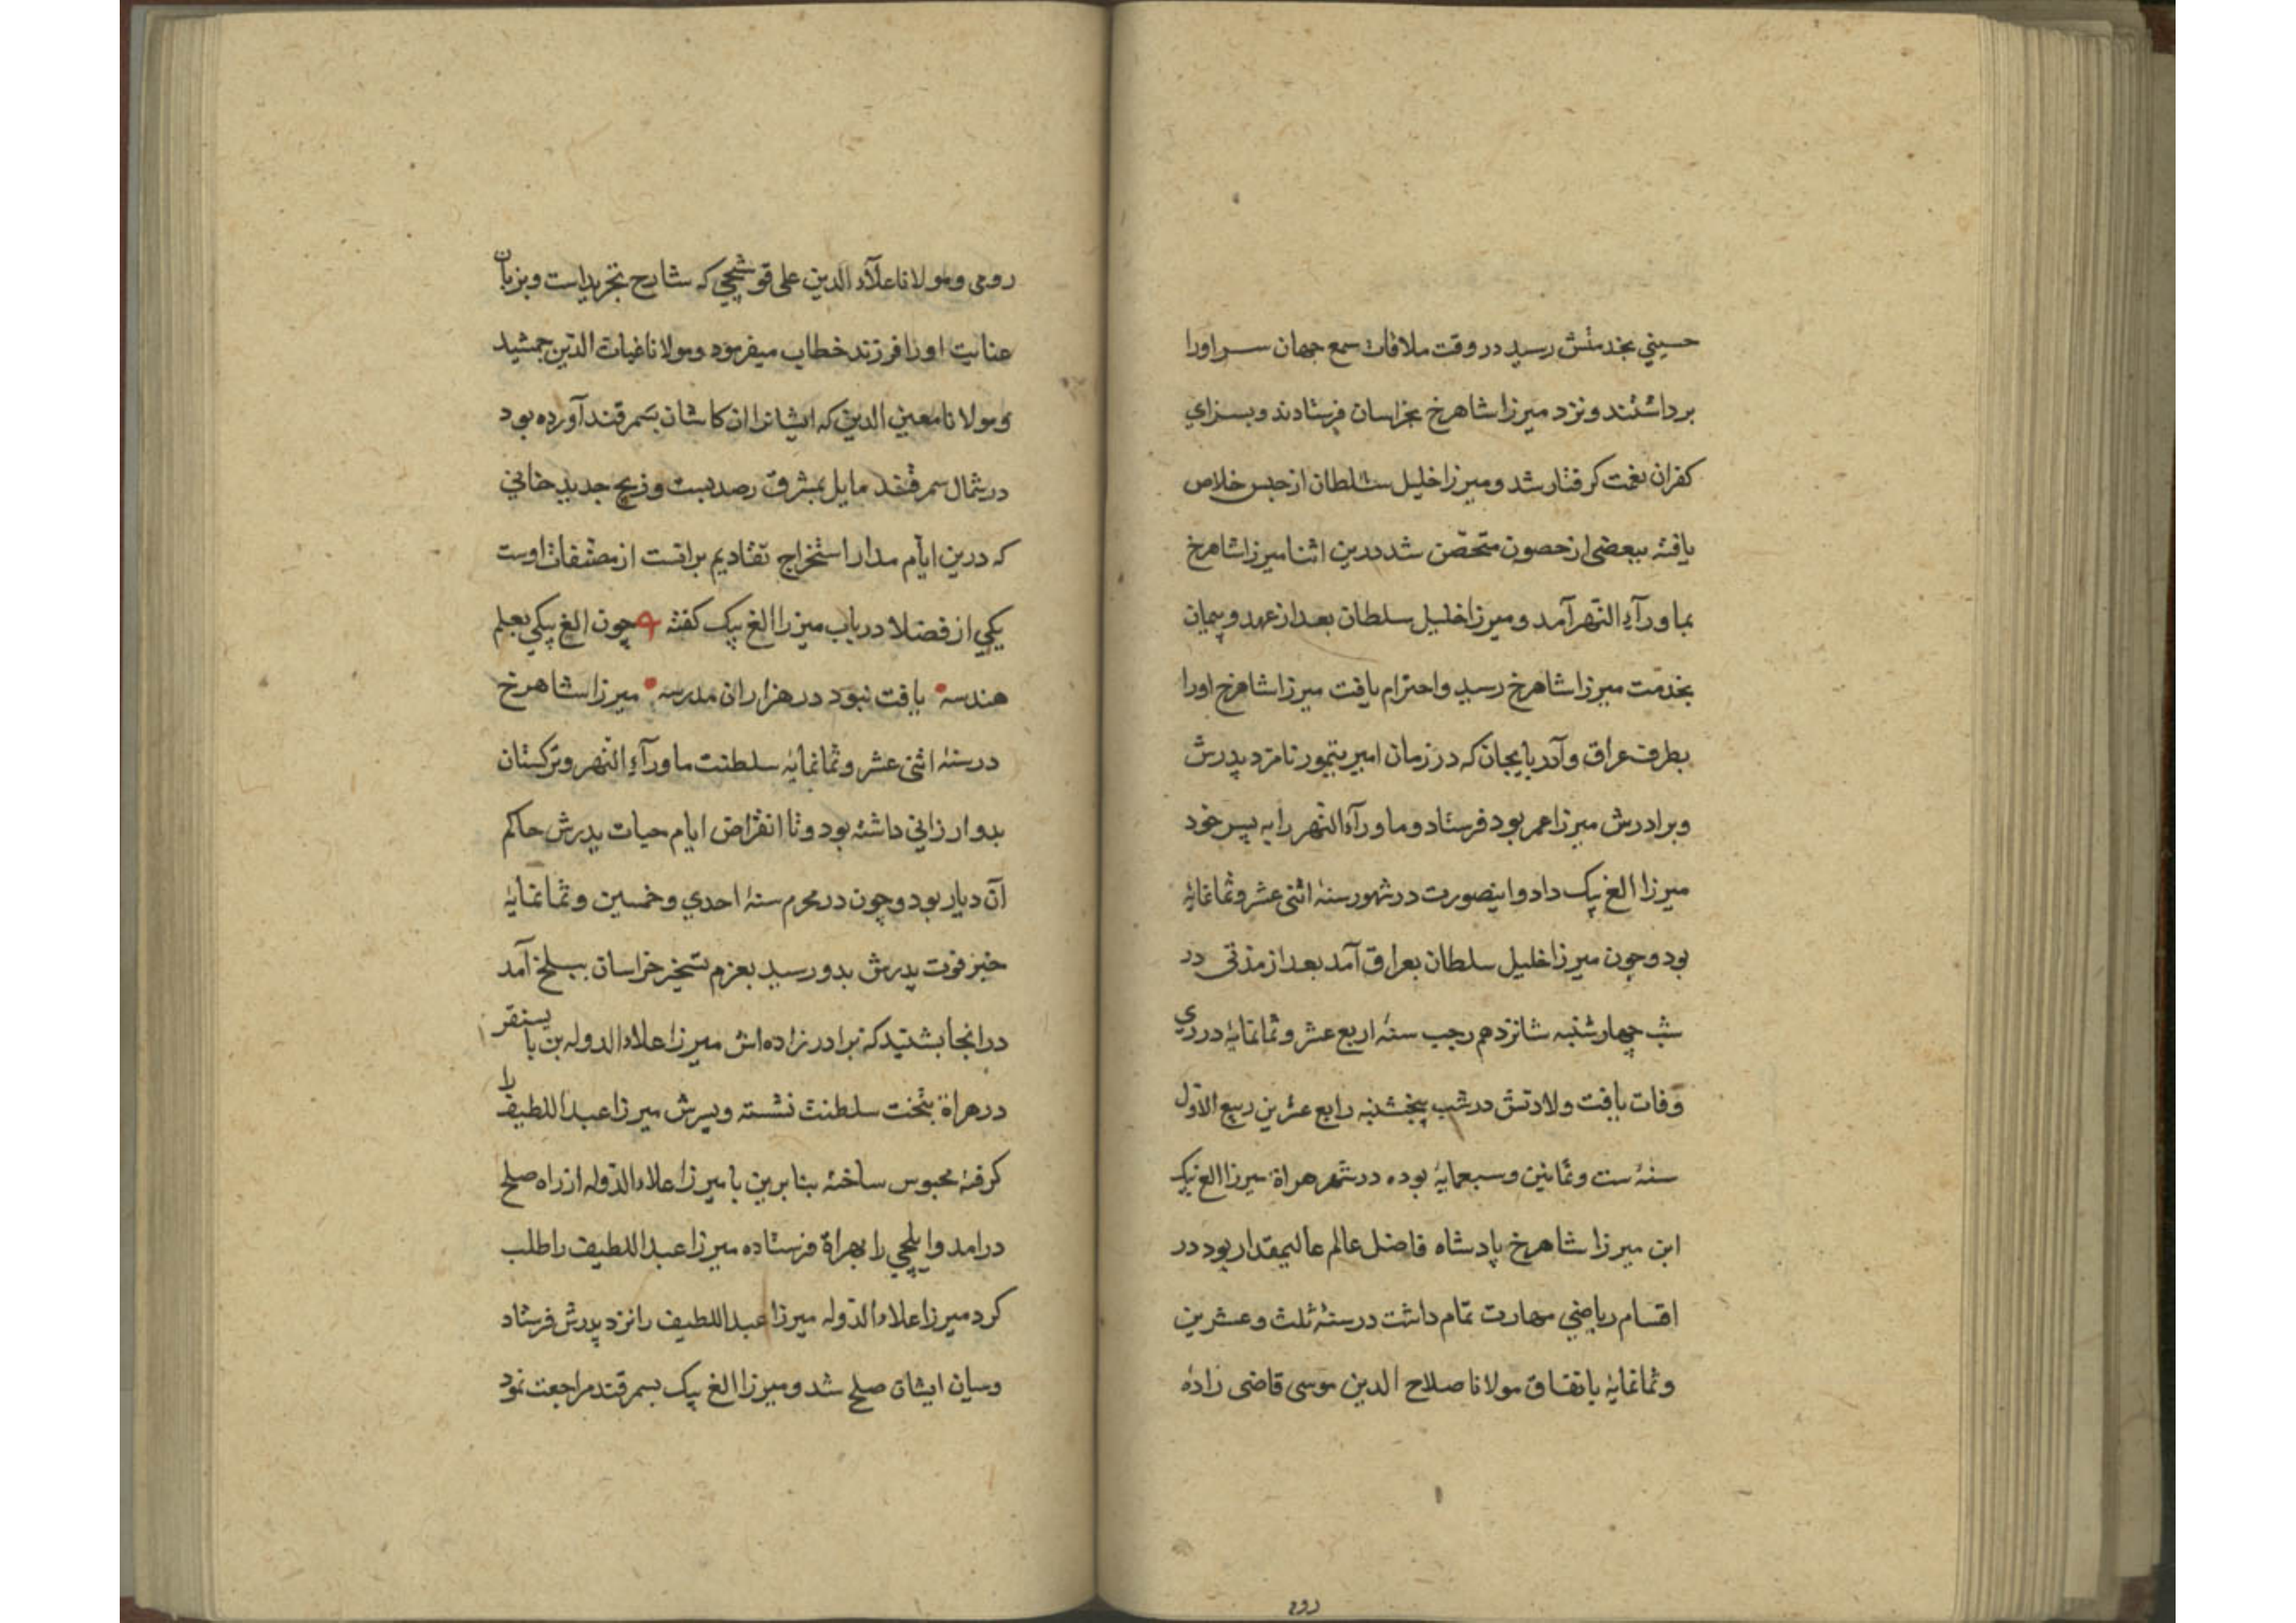 حسيني بخدمتش رسيد در وقت ملاقات سمع جهان سر اورا
برداشتند ونزد ميرزا شاهرخ بخراسان فرستادند وبسزاي
كفران نعمت كرفتار شد وميرزا خليل سلطان از حبس خلاص
يافته ببعضى از حصون متحصّن شد درين اثنا ميرزا شاهرخ
بماورآء النّهر آمد وميرزا خليل سلطان بعد از عهد وپيمان
بخدمت ميرزا شاهرخ رسيد واحترام يافت ميرزا شاهرخ اورا
بطرف عراق وآدربايجان كه در زمان امير تيمور نامزد پدرش
وبرادرش ميرزا عمر بود فرستاد وماورآء النّهر را به پسر خود
ميرزا الغ بيک داد واينصورت در شهور سنه اثنى عشر وثمانمايه
بود وچون ميرزا خليل سلطان بعراق آمد بعد از مدّتى در
شب چهارشنبه شانزدهم رجب سنۀ اربع عشر وثمانمايۀ در ري
وفات يافت ولادتش در شب پنجشنبه رابع عشرين ربيع الاوّل
سنۀ ست وثمانين وسبعمايۀ بوده در شهر هراة ميرزا الغ بيک
ابن ميرزا شاهرخ پادشاه فاضل عالم عاليمقدار بود در
اقسام رياضي مهارت تمام داشت در سنۀ ثلث وعشرين
وثمانمايۀ باتفاق مولانا صلاح الدين موسى قاضى زاده
ررم
رومى ومولانا علآء الدين على قوشچي كه شارح تجريد است وبزبان
عنايت اورا فرزند خطاب ميفرمود ومولانا غياث الدّين جمشيد
ومولانا معين الدين كه ايشانرا ان كاشان بسمرقند آورده بود
در شمال سمرقند مايل بمشرق رصد بست وزيچ جديد خاني
كه درين ايّام مدار استخراج تقاديم برانست از مصنّفات اوست
يكي از فضلا در باب ميرزا الغ بيک كفته چون الغ بيكي بعلم
هندسه يافت نبود در هزاران مدرسه ميرزا شاهرخ
در سنۀ اثنى عشر وثمانمايۀ سلطنت ماورآء النّهر وتركستان
بدو ارزاني داشته بود وتا انقراض ايام حيات پدرش حاكم
آن ديار بود وچون در محرم سنۀ احدي وخمسين وثمانمايۀ
خبر فوت پدرش بدو رسيد بعزم تسخير خراسان ببلخ آمد
در انجا بشنيد كه برادر زاده اش ميرزا علاء الدوله بن بايسنقر
در هراة بتخت سلطنت نشسته وپسرش ميرزا عبد اللطيف را
كرفته محبوس ساخته بنا برين با ميرزا علاء الدّوله از راه صلح
درامد وايلچي را بهراة فرستاده ميرزا عبد اللطيف را طلب
كرد ميرزا علاء الدّوله ميرزا عبد اللطيف را نزد پدرش فرستاد
وميان ايشان صلح شد وميرزا الغ بيک بسمرقند مراجعت نمود